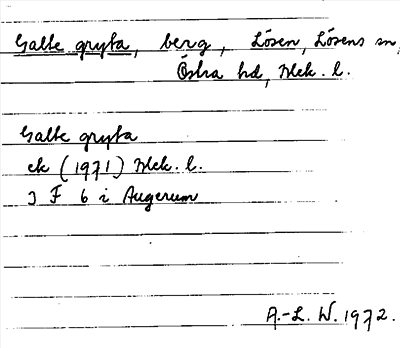 Galte gryta, berg, Lösen, Lösens sn,
Östra hd, Blek. l.
Galte gryta
ek (1971) Blek. l.
3 F 6 i Augerum
A.-L. W. 1972.